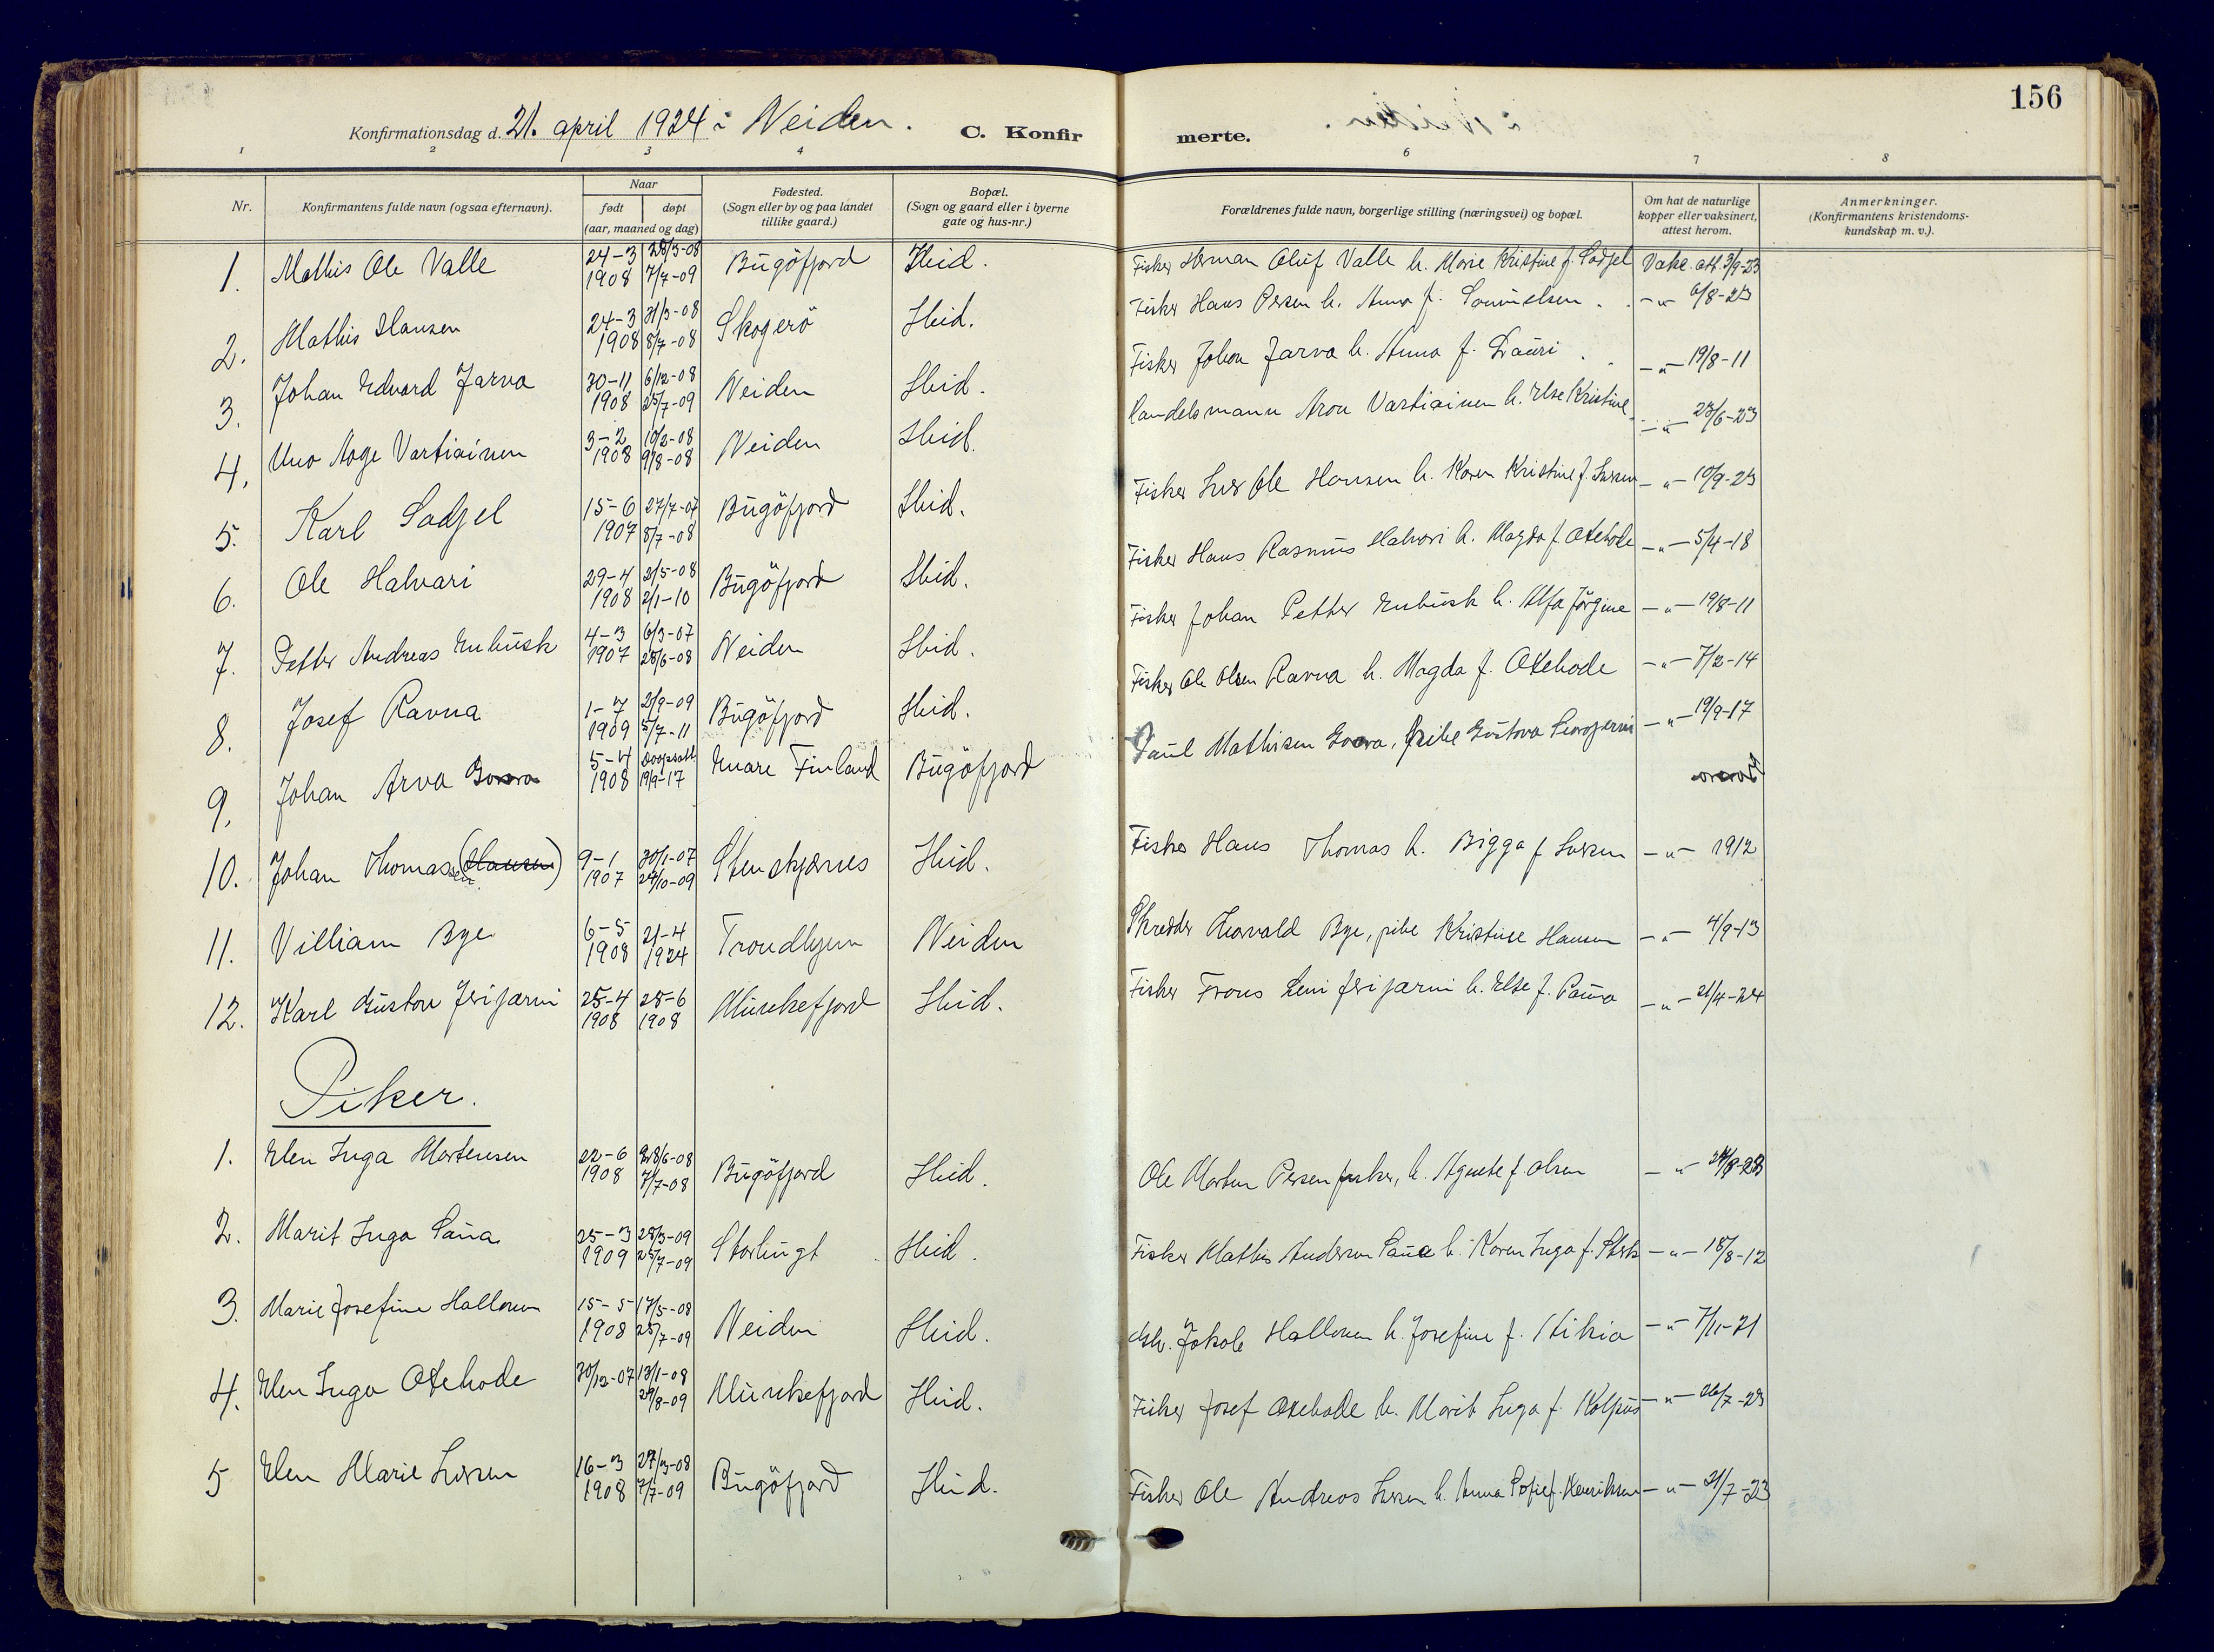 156
Konfirmationsdag d. 21. april 1924 i Neiden. C. Konfir merte.
1 2 3 4 6 7 8
Nr. Konfirmantens fulde navn (ogsaa efternavn). Naar født døpt (aar, maaned og dag) Fødested. (Sogn eller by og paa landet tillike gaard.) Bopæl. (Sogn og gaard eller i byerne gate og hus-nr.) Forældrenes fulde navn, borgerlige stilling (næringsvei) og bopæl. Om hat de naturlige kopper eller vaksinert, attest herom. Anmerkninger. (Konfirmantens kristendoms-kundskap m. v.).
1. Mathis Ole Valle 24-3 1908 28/3-08 7/7-09 Bugöfjord Ibid. Fisker Herman Oluf Valle h. Marie Kristine f. Sadjel Vakc. att. 3/9-23
2. Mathis Hansen 24-3 1908 31/3-08 8/7-08 Skogerö Ibid. Fisker Hans Persen h. Anna f. Samuelsen - " - 6/8-23
3. Johan Edvard Jarva 30-11 1908 6/12-08 25/7-09 Neiden Ibid. Fisker Johan Jarva h. Anna f. Lauri - " - 19/8-11
4. Uno Aage Vartiainen 3-2 1908 10/2-08 9/8-08 Neiden Ibid. Handelsmann Aron Vartiainen h. Else Kristine - " - 23/6-23
5. Karl Sadjel 15-6 1907 27/7-07 8/7-08 Bugöfjord Ibid. Fisker Iver Ole Hansen h. Karen Kristine f. Iversen - " - 10/9-23
6. Ole Halvari 29-4 1908 2/5-08 2/1-10 Bugöfjord Ibid. Fisker Hans Rasmus Halvari h. Magda f. Oxehode - " - 5/4-18
7. Petter Andreas Enbusk 4-3 1907 6/3-07 28/6-08 Neiden Ibid. Fisker Johan Petter Enbusk h. Alfa Jörgine - " - 19/8-11
8. Josef Ravna 1-7 1909 2/9-09 5/7-11 Bugöfjord Ibid. Fisker Ole Olsen Ravna h. Magda f. Oxehode - " - 7/2-14
9. Johan Arva Gorora 5-4 1908 19/9-17 Enare Finland Bugöfjord Paul Mathisen Gvara, pike Gustava - " - 19/9-17
10. Johan Thomassen (Hansen) 9-1 1907 30/1-07 24/10-09 Stenskjernes Ibid. Fisker Hans Thomas h. Bigga f Iversen - " - 1912
11. Villiam Bye 6-5 1908 21-4 1924 Trondhjem Neiden Skredder Thorvald Bye, pike Kristine Hansen - " - 4/9-13
12. Karl Gustav Jerijærvi 25-4 1908 28-6 1908 Munkefjord Ibid. Fisker Frans Leni Jerijærvi h. Else f. Pauva - " - 21/4-24
Piker.
1. Elen Inga Mortensen 22-6 1908 28/6-08 7/7-08 Bugöfjord Ibid. Ole Morten Persen fisker, h. Agnete f. Olsen - " - 24/8-23
2. Marit Inga Saua 25-3 1909 28/3-09 25/7-09 Storbugt Ibid. Fisker Mathis Andersen Saua h. Karen Inga f. Sterk - " - 18/8-12
3. Marie Josefine Hallonen 15-5 1908 17/5-08 25/7-09 Neiden Ibid. Jakob Hallonen h. Josefine f. Stikia - " - 7/11-21
4. Elen Inga Oxehode 30/12-07 13/1-08 29/8-09 Munkefjord Ibid. Fisker Josef Oxehode h. Marit Inga f. Kolpus - " - 26/7-23
5 Elen Marie Iversen 16-3 1908 29/3-08 7/7-09 Bugöfjord Ibid. Fisker Ole Andreas Iversen h. Anna Sofie f. Henriksen - " - 21/7-23